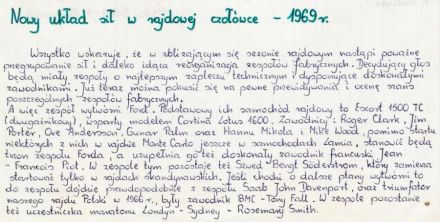 Nowy układ sił w rajdowej czołówce - 1969 r.
Wszystko wskazuje, że w zbliżającym się sezonie rajdowym nastąpi poważne
przegrupowanie sił i daleko idąca reorganizacja zespołów fabrycznych. Decydujący głos
będą miały zespoły o najlepszym zapleczu technicznym i dysponujące doskonałymi
zawodnikami. Już teraz można pokusić się na pewne przewidywania i ocenę szans
poszczególnych zespołów fabrycznych.
A więc zespół wytwórni Ford. Podstawowy ich samochód rajdowy to Escort 1500 TC
(dwugaźnikowy), wsparty modelem Cortina Lotus 1600. Zawodnicy: Roger Clark, Jim
Porter, Ove Andersson, Gunar Palm oraz Hannu Mikola i Mike Wood, pomimo startu
niektórych z nich w rajdzie Monte Carlo jeszcze w samochodach Lancia, stanowić będą
trzon zespołu Forda, a uzupełnia go też doskonały zawodnik francuski Jean
Francois Piot. W zespole tym pozostaje też Szwed Bengt Söderstrom, który zamierza
startować tylko w rajdach skandynawskich. Jeśli chodzi o dalsze plany wytwórni to
do zespołu dojdzie prawdopodobnie z zespołu Saab John Davenport, oraz triumfator
naszego rajdu Polski w 1966 r., były zawodnik BMC - Tony Fall. W zespole pozostaje
też uczestniczka maratonu Londyn - Sydney - Rosemary Smith.